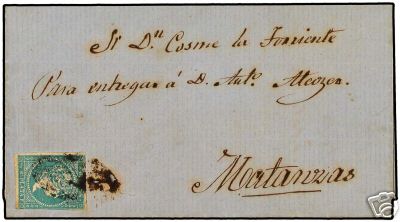 Sr Dn Cosme la Torriente
Para entregar á D. Anto. Alcozer
Matanzas
ebY